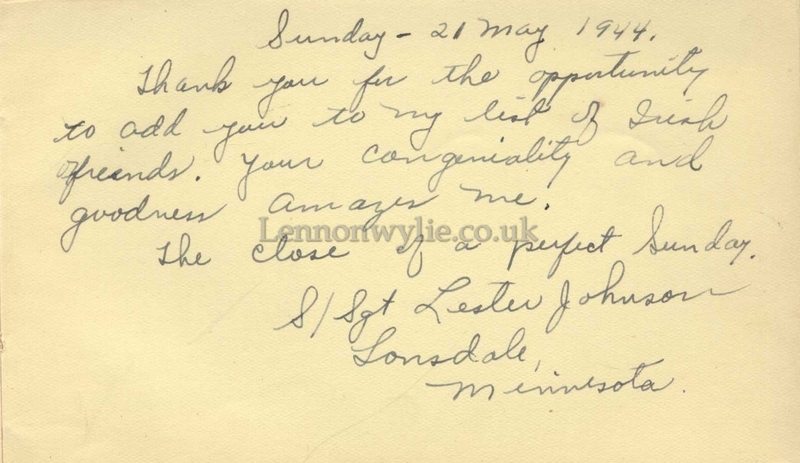 Sunday - 21 May 1944.
Thank you for the opportunity
to add you to my list of Irish
friends. Your congeniality and
goodness amazes me.
Lennonwylie.co.uk
The close of a perfect Sunday.
S/Sgt Lester Johnson
Lonsdale,
Minnesota.